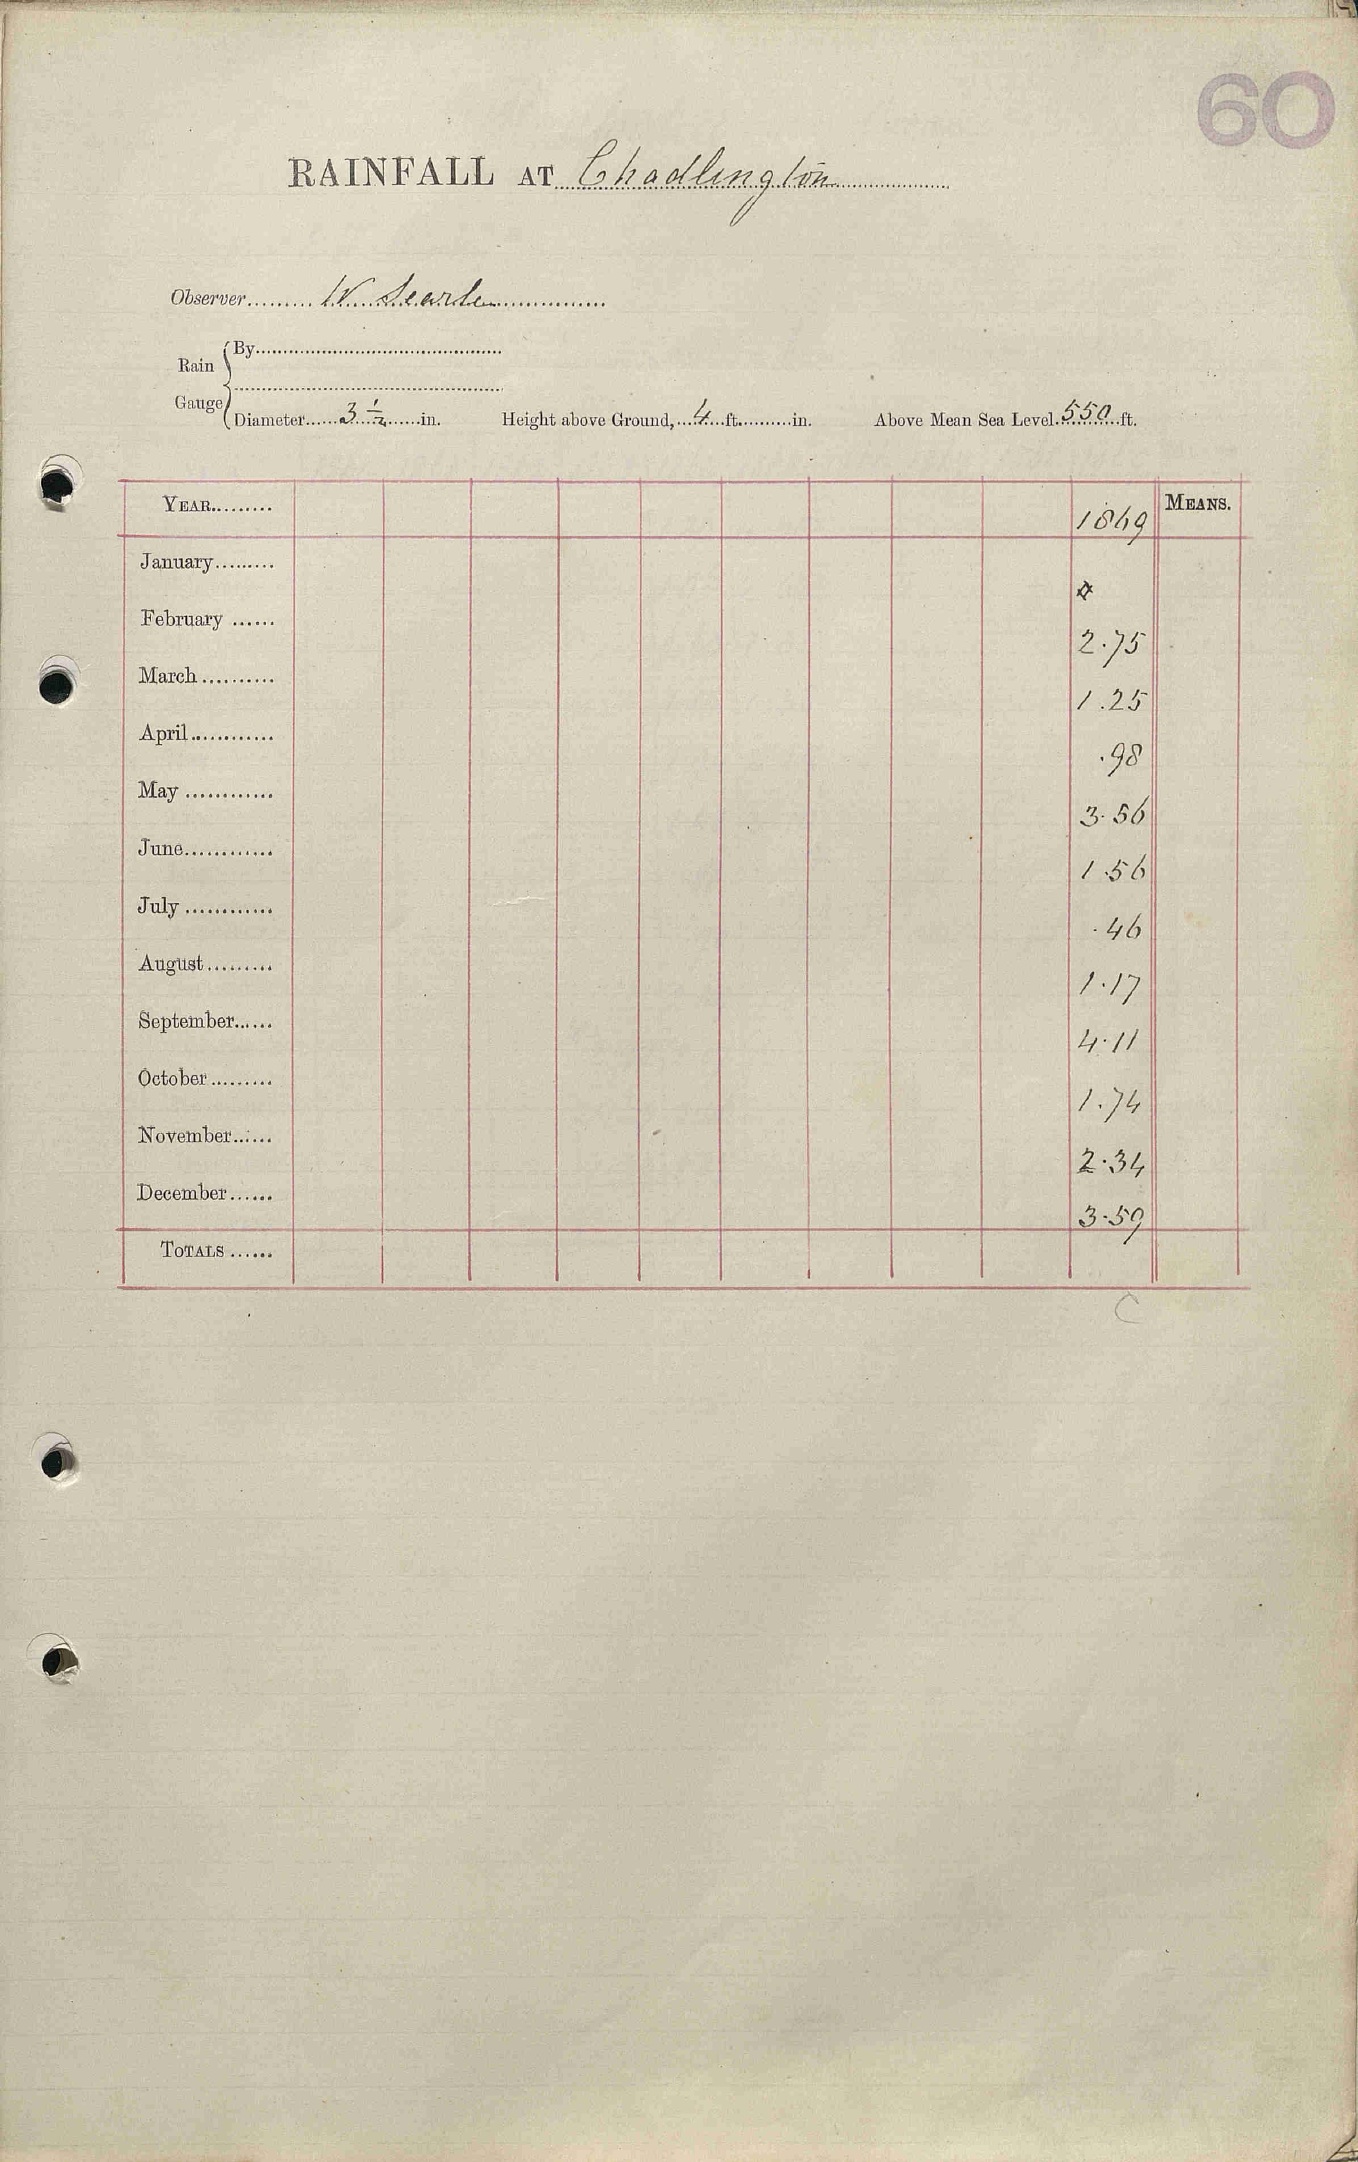 60
RAINFALL AT Chadlington
Observer W Searle
Rain Gauge
By
Diameter 3 1/2 in. Height above Ground, 4 ft. in. Above Mean Sea Level 550 ft.
YEAR 1869 MEANS.
January
February 2.75
March 1.25
April .98
May 3.56
June 1.56
July .46
August 1.17
September 4.11
October 1.74
November 2.34
December 3.59
TOTALS
C